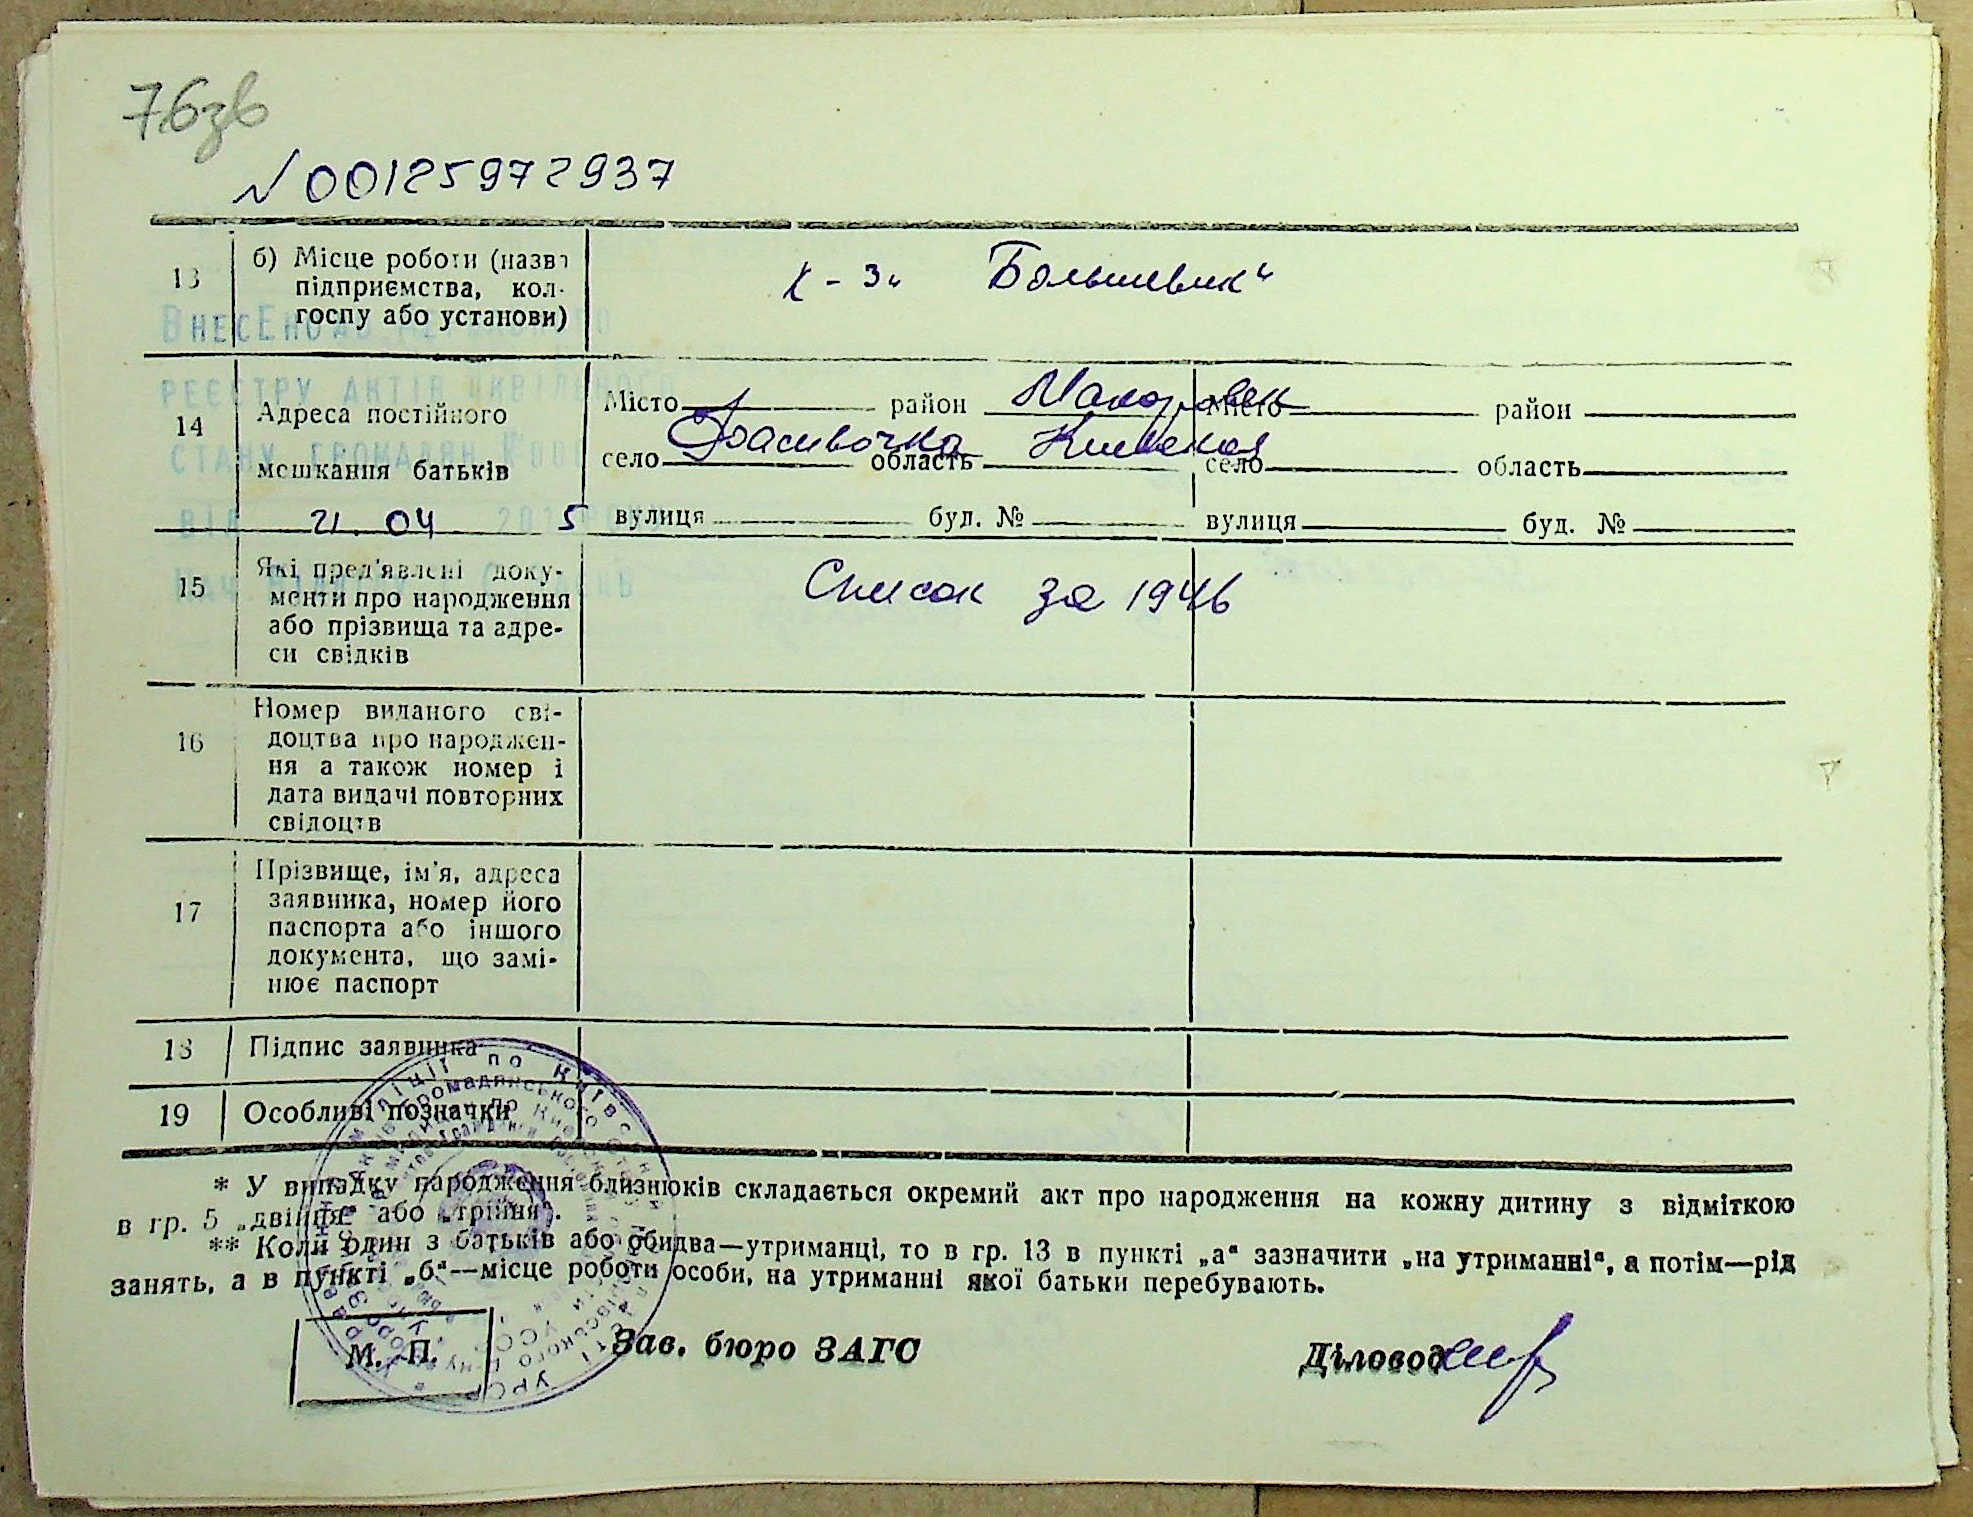 76зв
N 00125972937
13 б) Місце роботи (назва
підприємства, кол-
госпу або установи)
к-з „Большевик“
ВнесЕно до
реєстру актів цивільного
стану громадян
від 21. 04 201 5
14 Адреса постійного
мешкання батьків
Місто район Макаровск Місто район
село Фасивочка область Киевская село область
вулиця буд. № вулиця буд. №
15 Які пред'явлені доку-
менти про народження
або прізвища та адре-
си свідків
Список за 1946
16 Номер виданого сві-
доцтва про народжен-
ня а також номер і
дата видачі повторних
свідоцтв
17 Прізвище, ім'я, адреса
заявника, номер його
паспорта або іншого
документа, що замі-
нює паспорт
18 Підпис заявника
19 Особливі позначки
* У випадку народження близнюків складається окремий акт про народження на кожну дитину з відміткою
в гр. 5 „двійня“ або „трійня“.
** Коли один з батьків або обидва—утриманці, то в гр. 13 в пункті „а“ зазначити „на утриманні“, а потім—рід
занять, а в пункті „б“—місце роботи особи, на утриманні якої батьки перебувають.
М. П. Зав. бюро ЗАГС Діловод